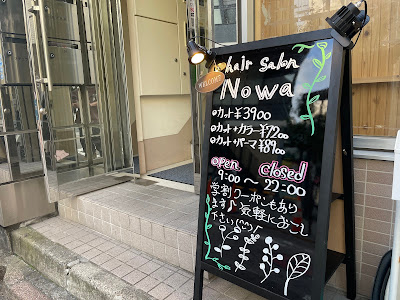 WELCOME
hair salon
Nowa
カット¥3900
カット+カラー¥7200
カット+パーマ¥8900
open closed
9:00〜22:00
学割クーポンもあり
ます♪気軽にお こし
下さい(^^)♪